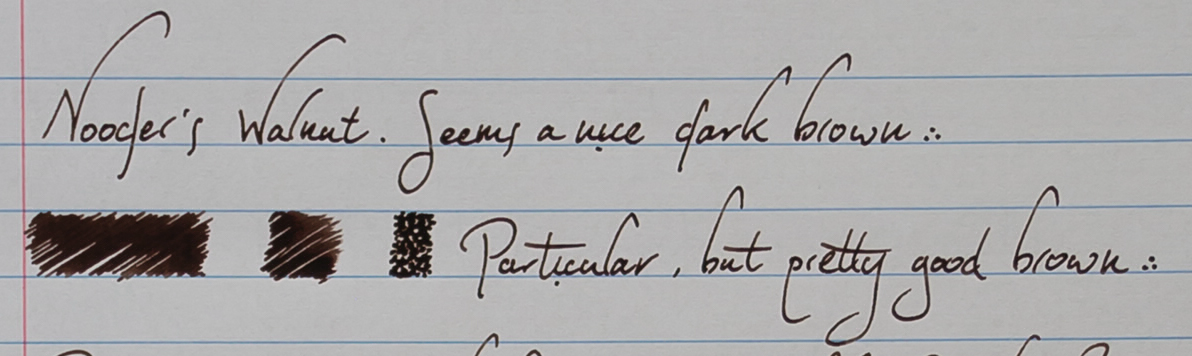 Noodler's Walnut. Seems a nice dark brown ∴
Particular, but pretty good brown ∴